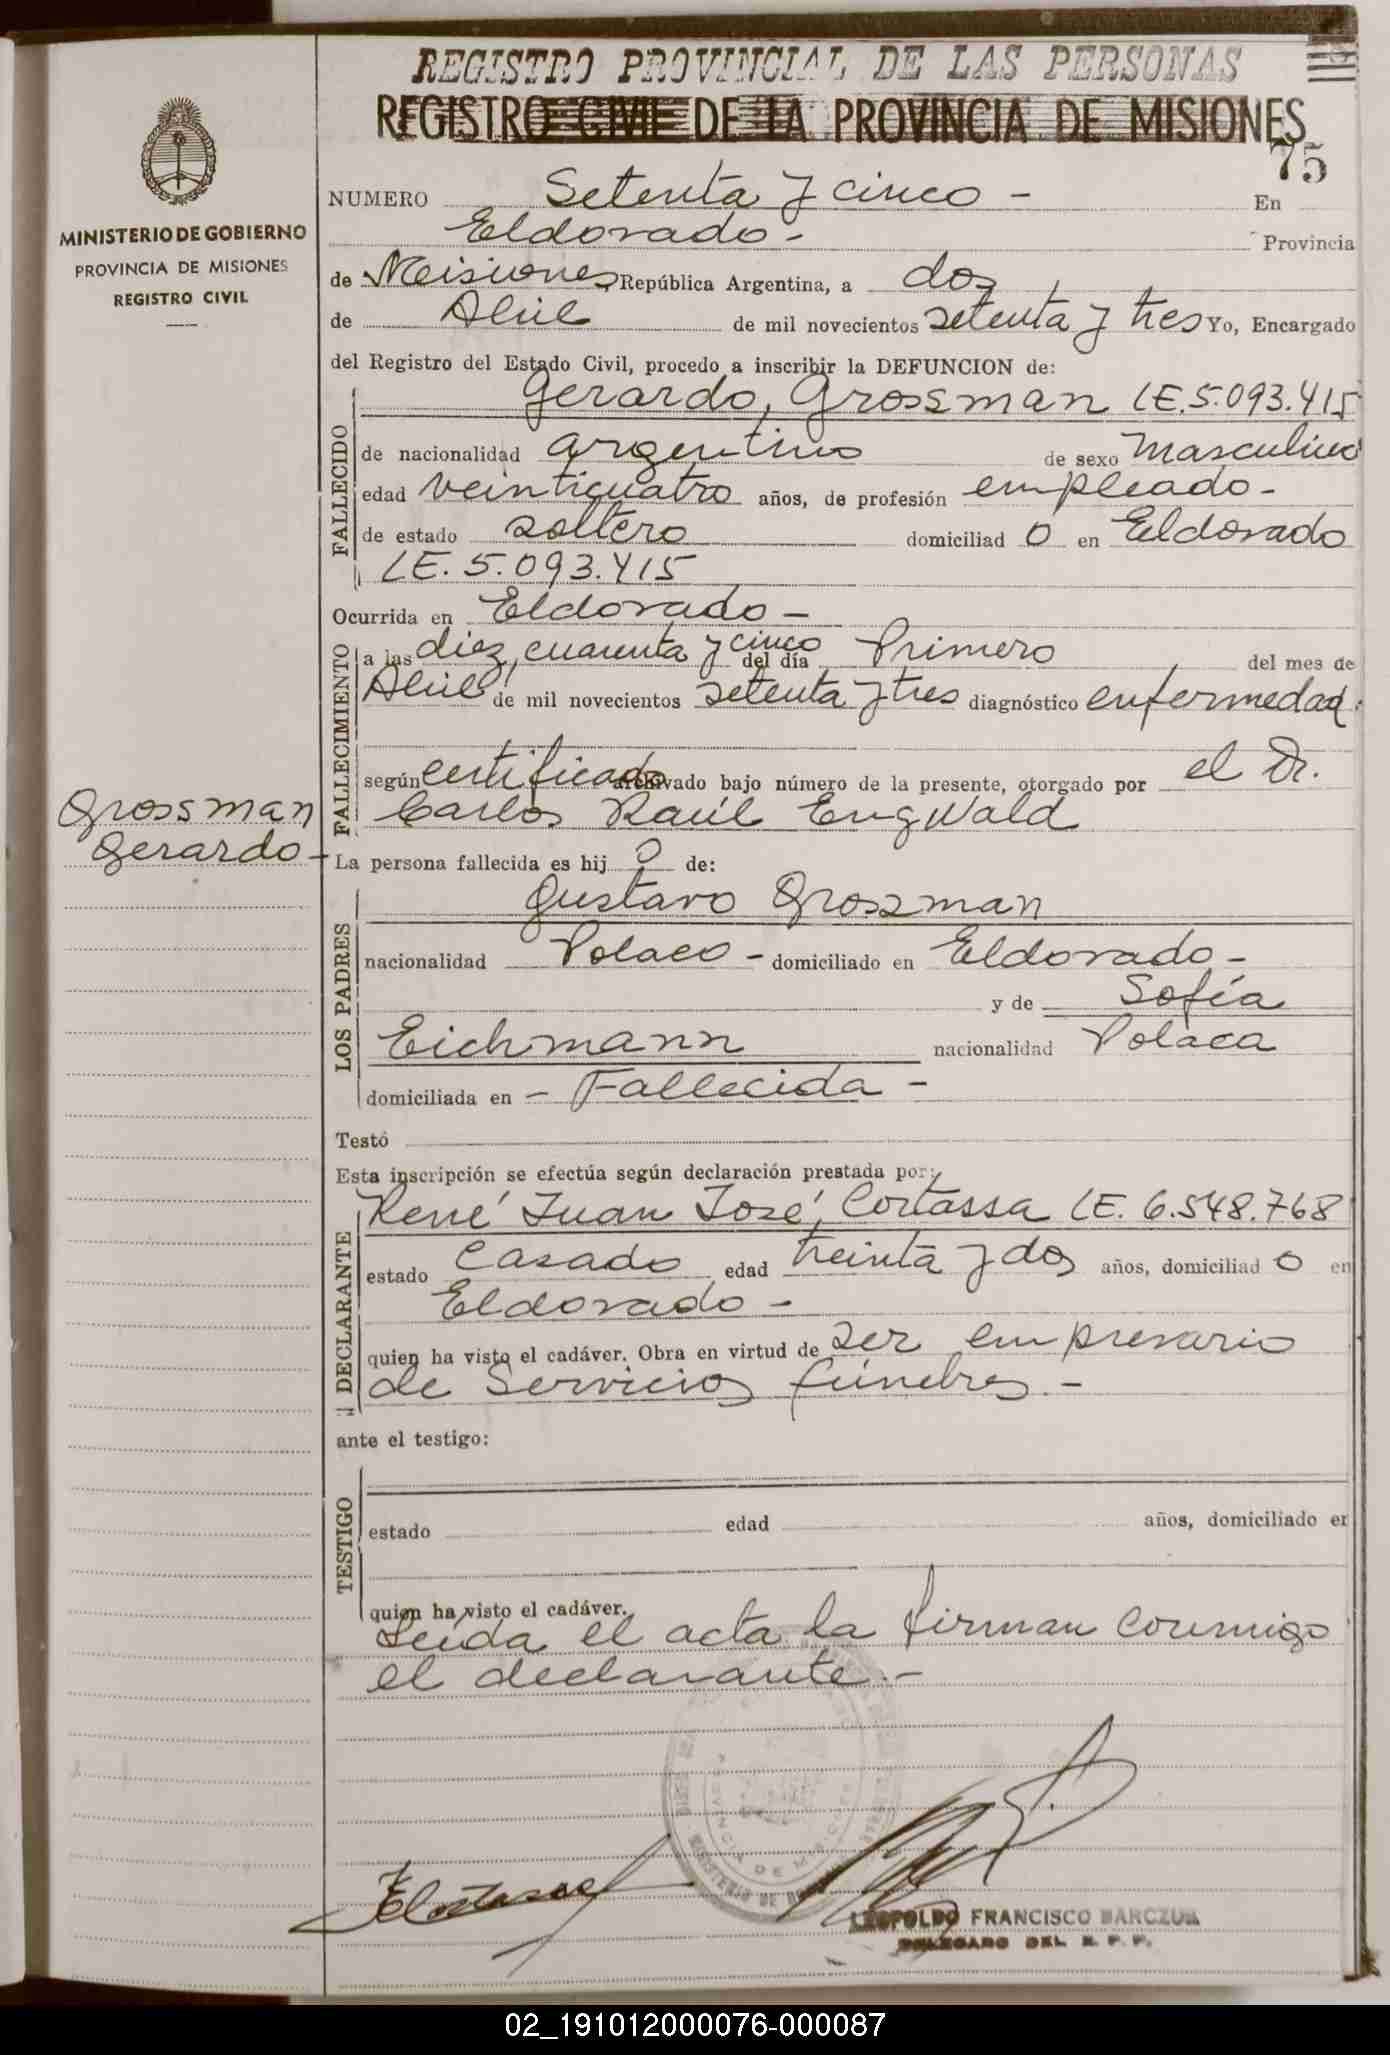 REGISTRO PROVINCIAL DE LAS PERSONAS
REGISTRO CIVIL DE LA PROVINCIA DE MISIONES
75
MINISTERIO DE GOBIERNO
PROVINCIA DE MISIONES
REGISTRO CIVIL
NUMERO Setenta y cinco - En
Eldorado - Provincia
de Misiones, República Argentina, a dos
de Abril de mil novecientos setenta y tres Yo, Encargado
del Registro del Estado Civil, procedo a inscribir la DEFUNCION de:
Gerardo, Grossman LE. 5.093.415
FALLECIDO
de nacionalidad argentino de sexo Masculino
edad veinticuatro años, de profesión empleado -
de estado soltero domiciliad o en Eldorado
LE. 5.093.415
Ocurrida en Eldorado -
FALLECIMIENTO
a las diez, cuarenta y cinco del día Primero del mes de
Abril de mil novecientos setenta y tres diagnóstico enfermedad.
según certificado archivado bajo número de la presente, otorgado por el Dr.
Carlos Raúl Engwald
Grossman
Gerardo -
La persona fallecida es hij o de:
LOS PADRES
Gustavo Grossman
nacionalidad Polaco - domiciliado en Eldorado -
y de Sofía
Eichmann nacionalidad Polaca
domiciliada en - Fallecida -
Testó
Esta inscripción se efectúa según declaración prestada por:
DECLARANTE
René Juan José, Cortassa LE. 6.548.768
estado Casado edad treinta y dos años, domiciliad o en
Eldorado -
quien ha visto el cadáver. Obra en virtud de ser empresario
de Servicios fúnebres. -
ante el testigo:
TESTIGO
estado edad años, domiciliado en
quien ha visto el cadáver.
Leída el acta la firman conmigo
el declarante. -
LEOPOLDO FRANCISCO BARCZUK
DELEGADO DEL R. P. P.
02_191012000076-000087